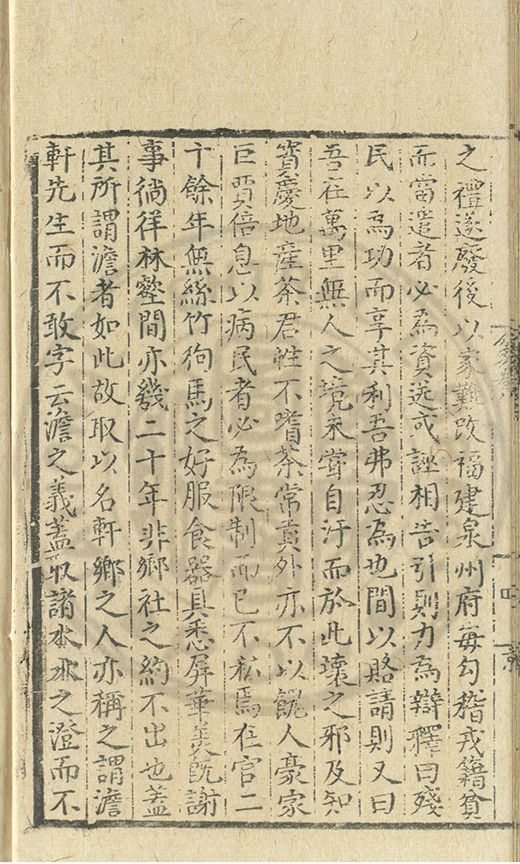 之禮遂廢後以家難改福建泉州府每勾稽戎籍貧
而當遣者必為資送或誣相告引則力為辯釋曰殘
民以為功而享其利吾弗忍為也間以賂請則又曰
吾在萬里無人之境未嘗自汙而於此壞之邪及知
寶慶地產茶君性不嗜茶常貢外亦不以餽人豪家
巨賈倍息以病民者必為限制而已不私焉在官二
十餘年無絲竹狗馬之好服食器具悉屏華美旣謝
事徜徉林壑間亦幾二十年非鄉社之約不出也蓋
其所謂澹者如此故取以名軒鄉之人亦稱之謂澹
軒先生而不敢字云澹之義蓋取諸水水之澄而不